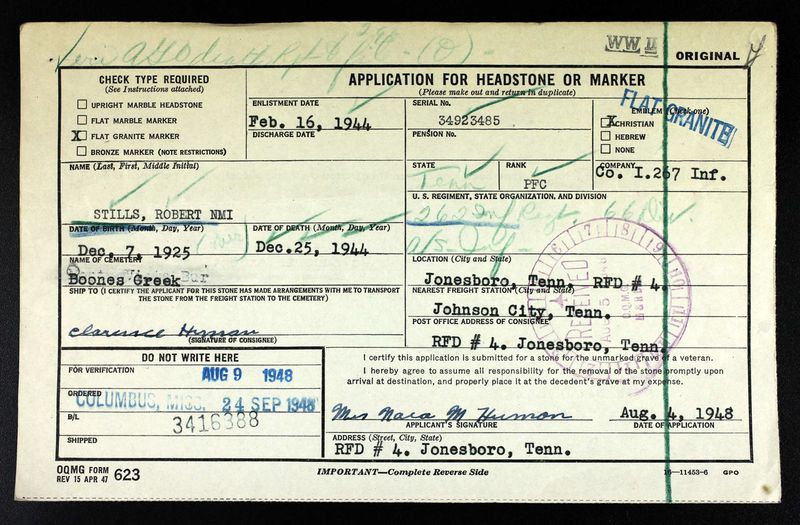 WW II
ORIGINAL
CHECK TYPE REQUIRED
(See Instructions attached)
UPRIGHT MARBLE HEADSTONE
FLAT MARBLE MARKER
X FLAT GRANITE MARKER
BRONZE MARKER (NOTE RESTRICTIONS)
APPLICATION FOR HEADSTONE OR MARKER
(Please make out and return in duplicate)
ENLISTMENT DATE
Feb. 16, 1944
DISCHARGE DATE
SERIAL No.
34923485
PENSION No.
EMBLEM (Check one)
X CHRISTIAN
HEBREW
NONE
FLAT GRANITE
NAME (Last, First, Middle Initial)
STILLS, ROBERT NMI
STATE
Tenn
RANK
PFC
COMPANY
Co. I.267 Inf.
U. S. REGIMENT, STATE ORGANIZATION, AND DIVISION
262 Inf Regt. 66 Div.
DATE OF BIRTH (Month, Day, Year)
Dec. 7, 1925
DATE OF DEATH (Month, Day, Year)
Dec.25, 1944
NAME OF CEMETERY
Boones Creek
LOCATION (City and State)
Jonesboro, Tenn, RFD # 4.
SHIP TO (I CERTIFY THE APPLICANT FOR THIS STONE HAS MADE ARRANGEMENTS WITH ME TO TRANSPORT
THE STONE FROM THE FREIGHT STATION TO THE CEMETERY)
NEAREST FREIGHT STATION (City and State)
Johnson City, Tenn.
POST OFFICE ADDRESS OF CONSIGNEE
RFD # 4. Jonesboro, Tenn.
Clarence Human
(SIGNATURE OF CONSIGNEE)
RECEIVED
DO NOT WRITE HERE
FOR VERIFICATION
AUG 9 1948
ORDERED
COLUMBUS, MISS. 24 SEP 1948
B/L
3416388
SHIPPED
I certify this application is submitted for a stone for the unmarked grave of a veteran.
I hereby agree to assume all responsibility for the removal of the stone promptly upon
arrival at destination, and properly place it at the decedent's grave at my expense.
Mrs Nara M Human
APPLICANT'S SIGNATURE
Aug. 4, 1948
DATE OF APPLICATION
ADDRESS (Street, City, State)
RFD # 4. Jonesboro, Tenn.
OQMG FORM
REV 15 APR 47 623
IMPORTANT—Complete Reverse Side
16—11453-6 GPO